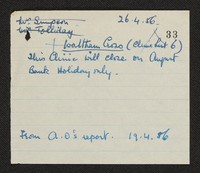 Mr. Simpson 26.4.56.
Mr Halliday 33
+ Waltham Cross (Clinic list 6)
This Clinic will close on August
Bank Holiday only.
From A.O's report. 19.4.56